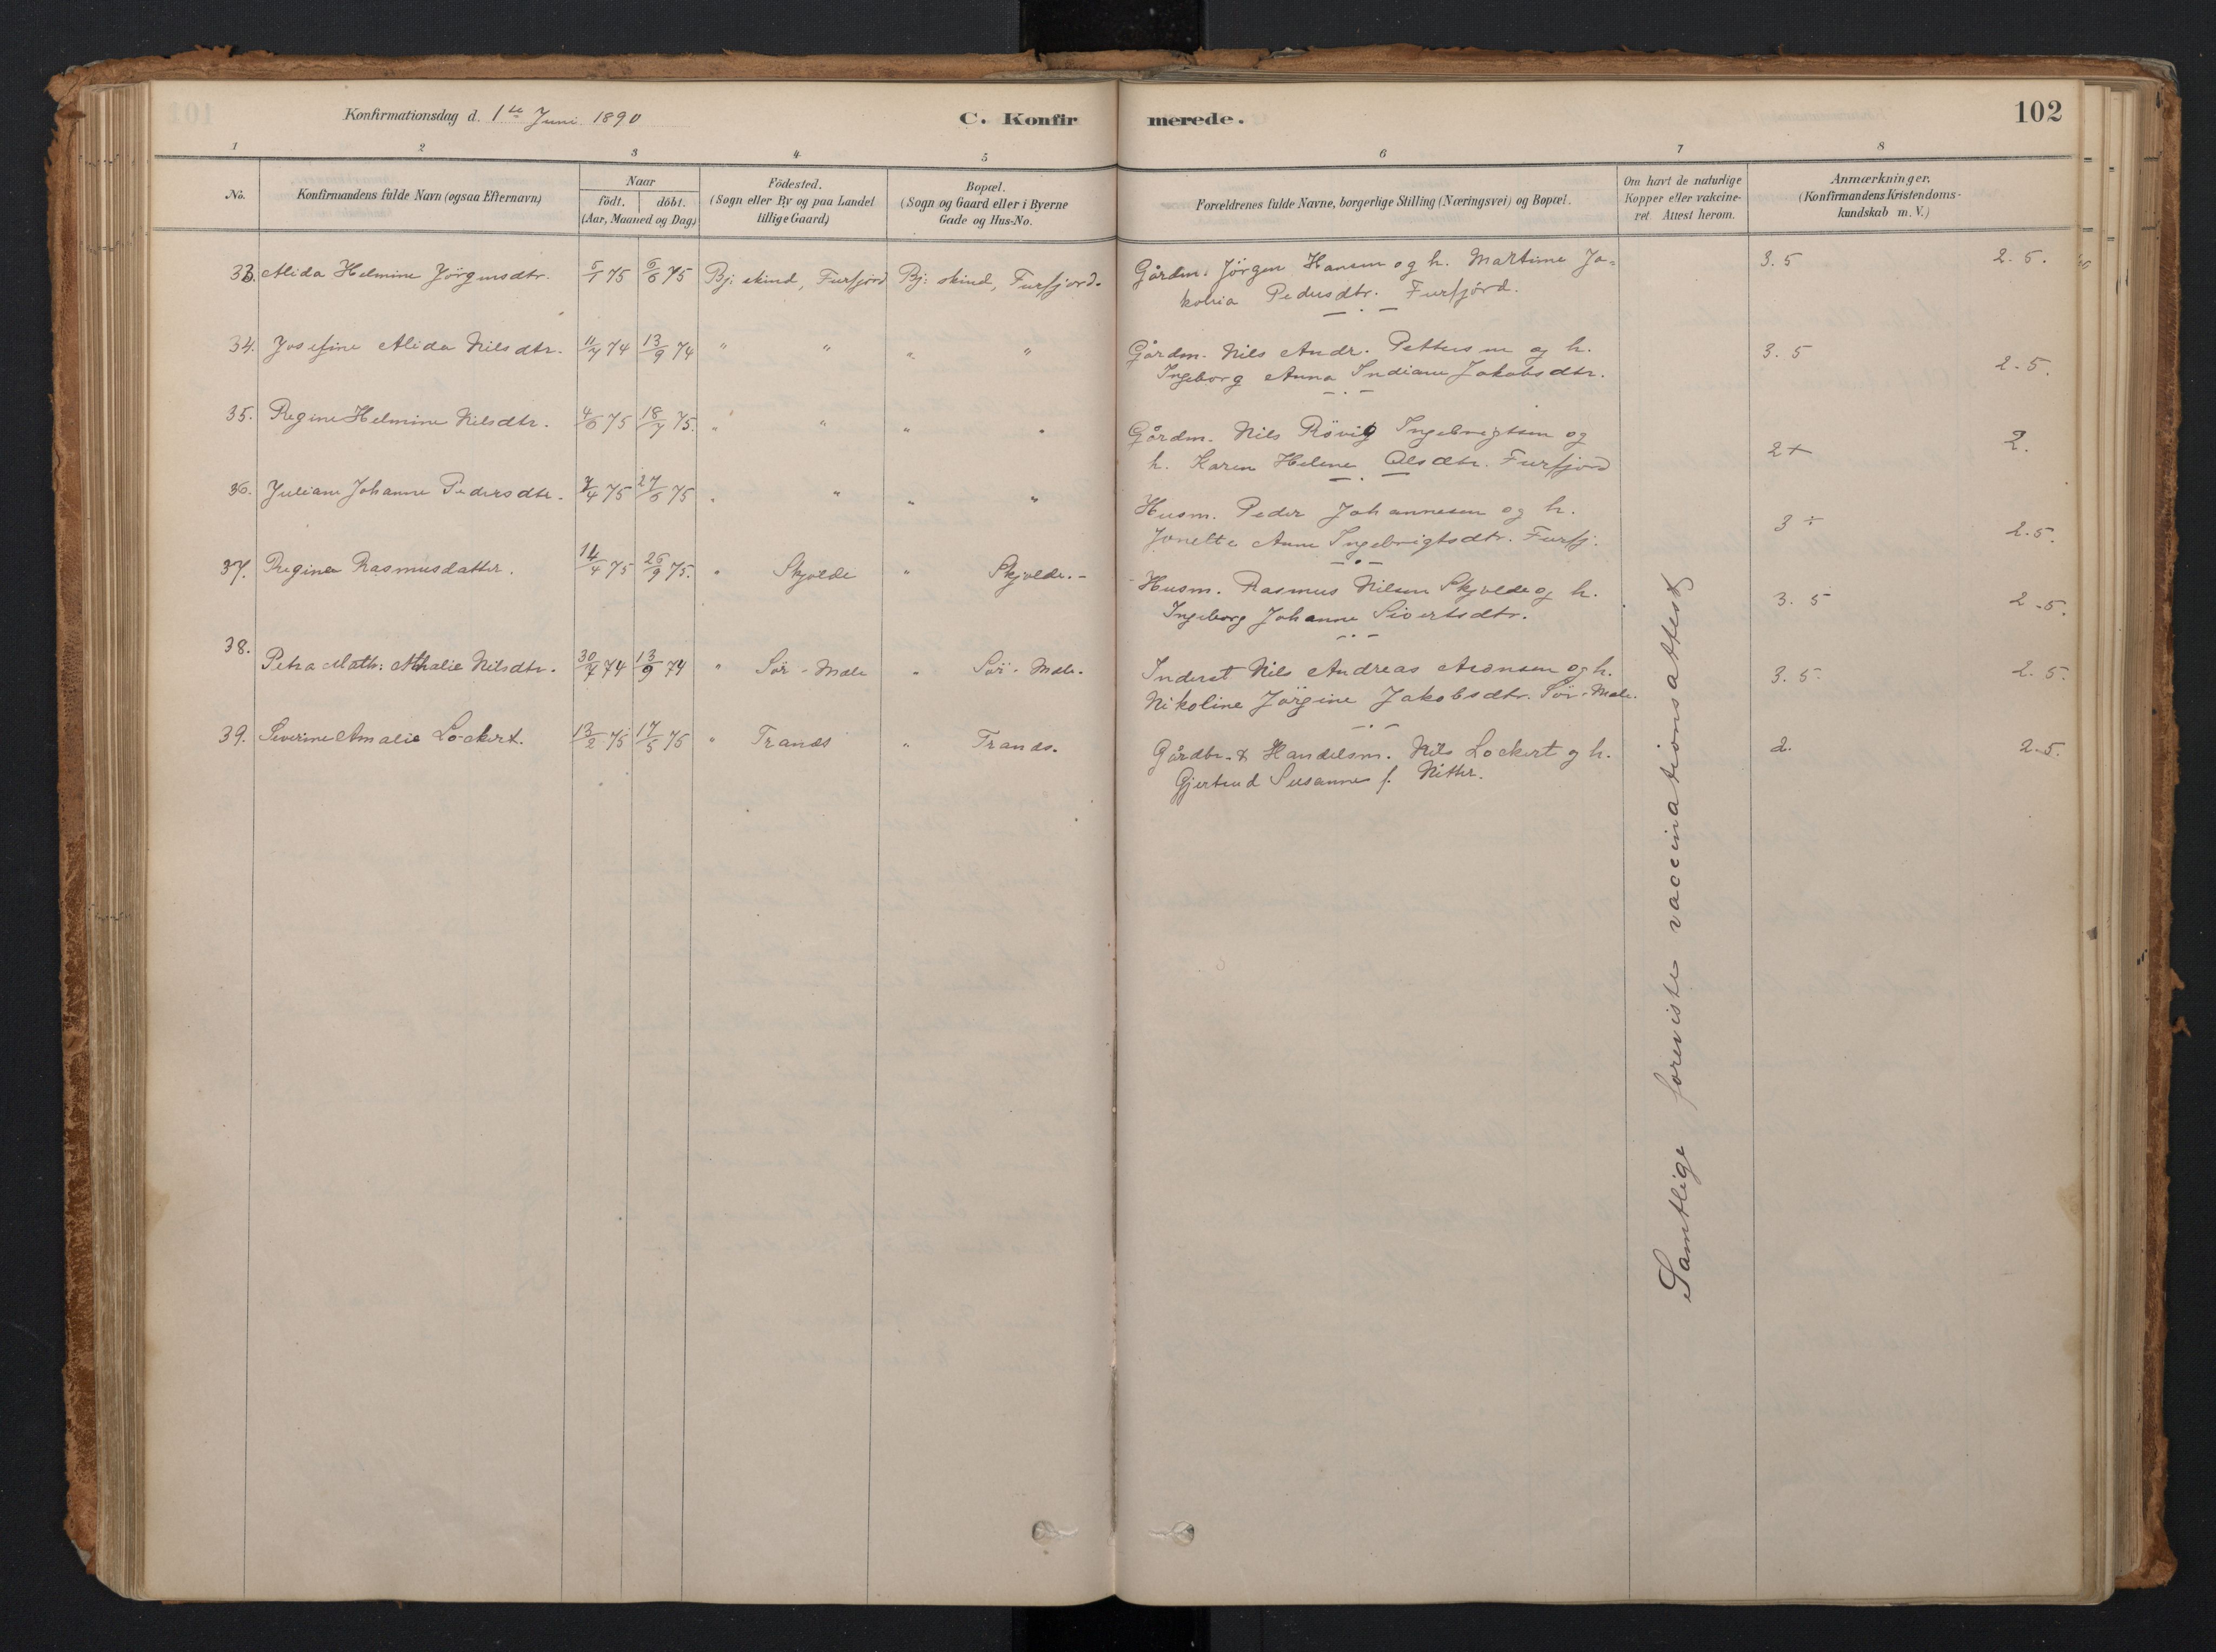 Konfirmationsdag d. 1ste Juni 1890 C. Konfir merede. 102
1 2 3 4 5 6 7 8
No. Konfirmandens fulde Navn (ogsaa Efternavn) Naar födt. döbt. (Aar, Maaned og Dag) Födested. (Sogn eller By og paa Landet tillige Gaard) Bopæl. (Sogn og Gaard eller i Byerne Gade og Hus-No. Forældrenes fulde Navne, borgerlige Stilling (Næringsvei) og Bopæl. Om havt de naturlige Kopper eller vakcineret. Attest herom. Anmærkninger. (Konfirmandens Kristendomskundskab m. V.)
33. Alida Helmine Jörgensdtr. 5/1 75 6/6 75 Bj: skind, Furfjord Bj: skind, Furfjord. Gårdm. Jörgen Hansen og h. Martine Ja= 3.5 2.5.
kobia Pedersdtr. Furfjord.
34. Josefine Alida Nilsdtr. 11/7 74 13/9 74 " " " " Gårdm. Nils Andr. Pettersen og h. 3.5 2.5.
Ingeborg Anna Indiane Jakobsdtr.
35. Regine Helmine Nilsdtr. 4/6 75 18/7 75. " " " " Gårdm. Nils Rövig Ingebrigtsen og 2+ 2.
h. Karen Helene Olsdtr. Furfjord
36. Juliane Johanne Pedersdtr. 75 27/6 75 " " " " Husm. Peder Johannesen og h. 3÷ 2.5.
Jonette Anne Ingebrigtsdtr. Furfj.
37. Regine Rasmusdatter. 14/4 75 26/9 75. " Skjolde " Skjolde.- Husm. Rasmus Nilsen Skjolde og h. 3.5 2.5.
Ingeborg Johanne Sivertsdtr.
38. Petra Math: Nilsdtr. 30/7 74 13/9 74 " Sör-Mele " Sör-Mele. Inderst Nils Andreas Aronsen og h. 3.5. 2.5.
Nikoline Jörgine Jakobsdtr. Sör-Mele.
39. Severine Amalie Lockert. 13/2 75 17/5 75 " Tranös " Tranös. Gårdbr. & Handelsm. Nils Lockert og h. 2. 2.5.
Gjertrud Susanne f. Nitter.
Samtlige foreviste vaccinationsattest